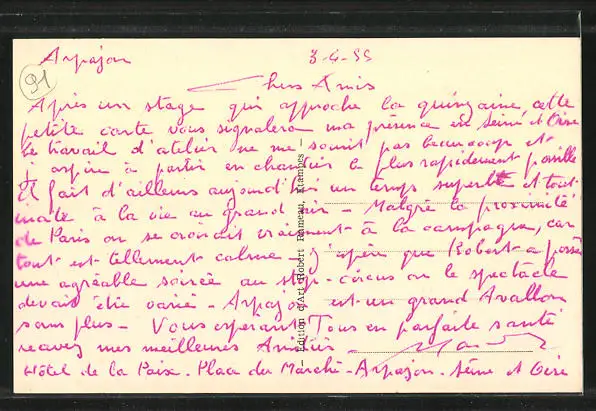 Arpajon 3-4-55
91
Chers Amis
Après un stage qui approche la quinzaine, cette
petite carte vous signalera ma présence en Seine et Oise
Le travail d'atelier ne me sourit pas beaucoup et
j'aspire à partir en chantier le plus rapidement possible
Il fait d'ailleurs aujourd'hui un temps superbe et tout
invite à la vie au grand air - Malgré la proximité
de Paris on se croirait vraiment à la campagne, car
tout est tellement calme - J'espère que Robert a passé
une agréable soirée au circus ou le spectacle
devait être varié - Arpajon est un grand Avallon
sans plus - Vous espérant Tous en parfaite santé
recevez mes meilleures Amitiés -
Hôtel de la Paix - Place du Marché - Arpajon - Seine et Oise
- Edition d'Art Robert Rameau, Etampes -